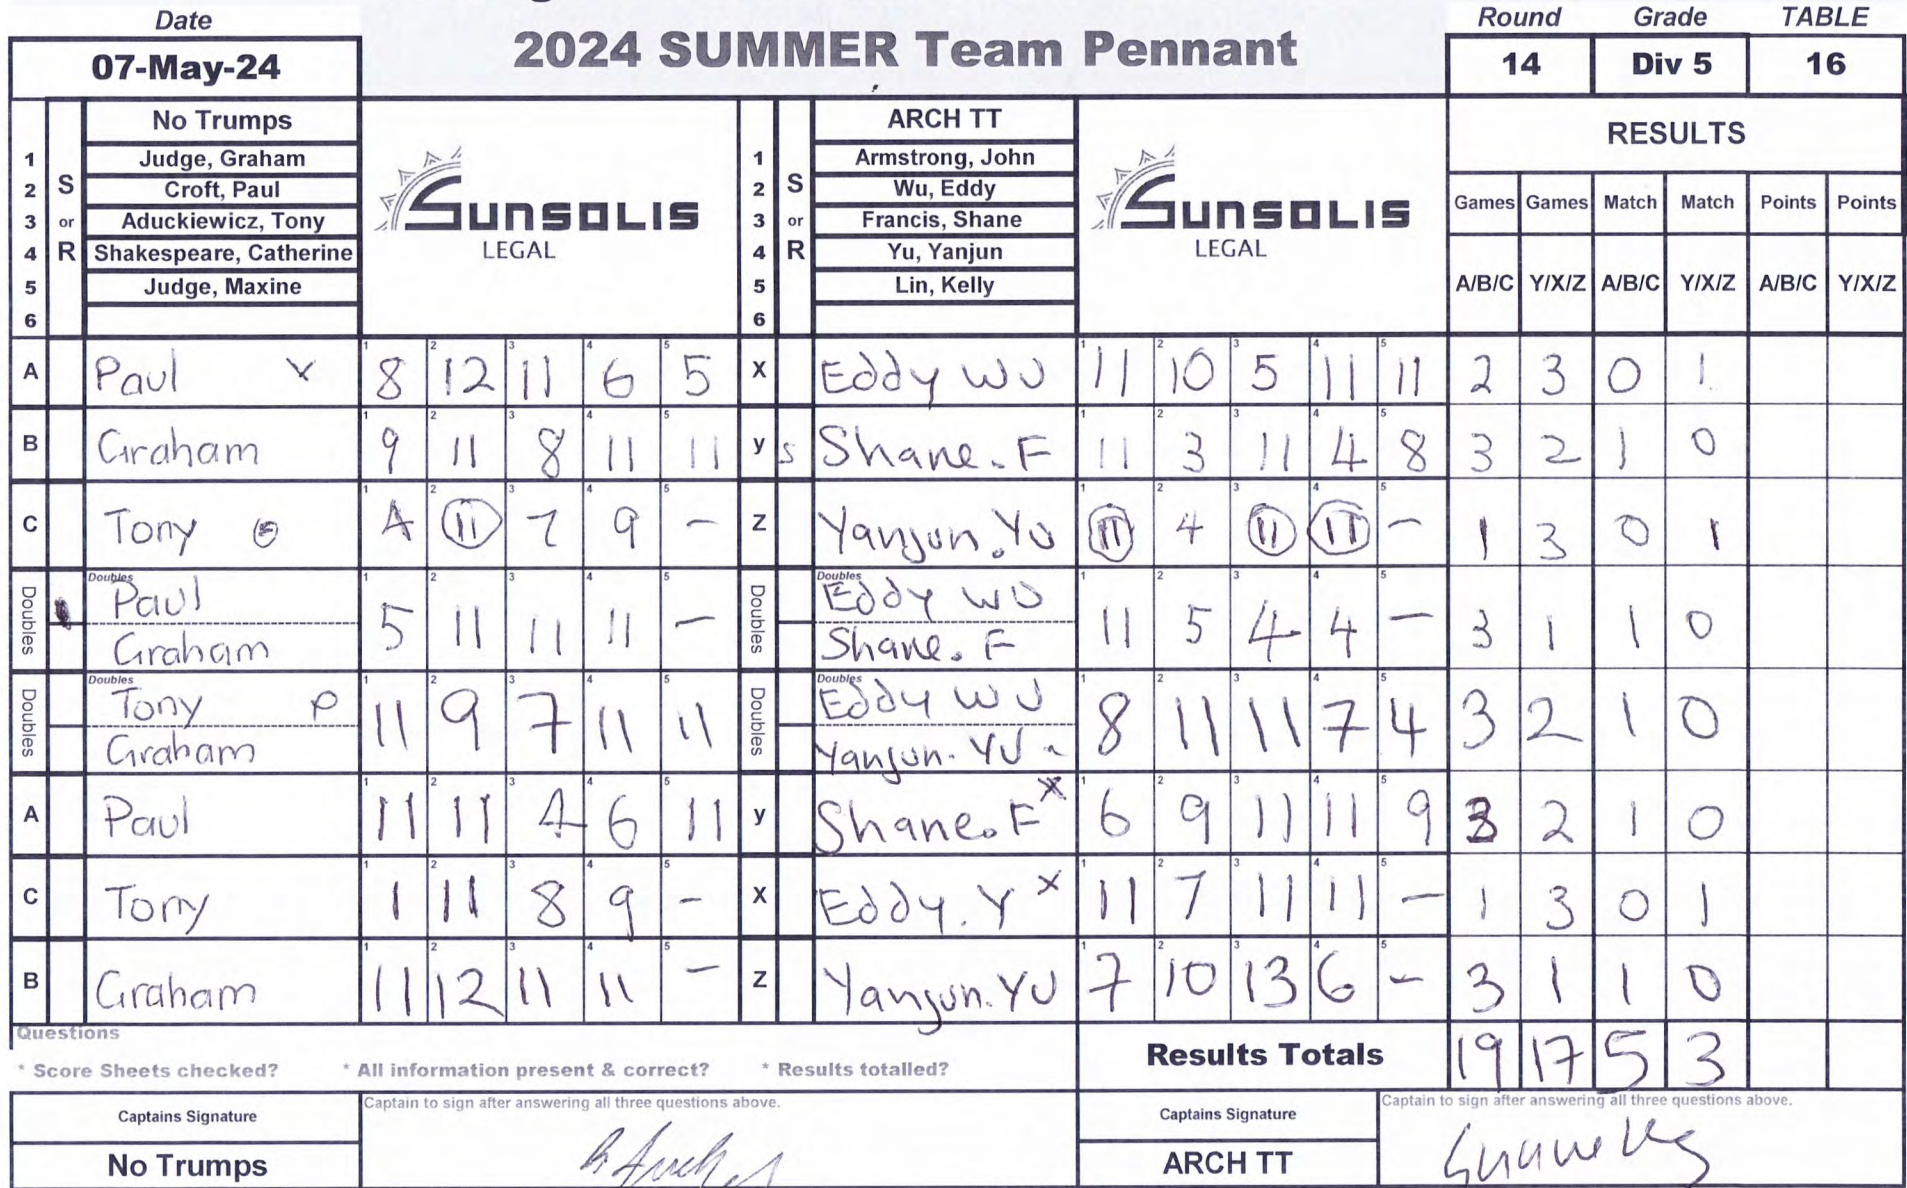 Date
2024 SUMMER Team Pennant
Round Grade TABLE
07-May-24
14 Div 5 16
No Trumps
1 Judge, Graham
2 Croft, Paul
3 Aduckiewicz, Tony
4 Shakespeare, Catherine
5 Judge, Maxine
6
S
or
R
SUNSOLIS
LEGAL
ARCH TT
1 Armstrong, John
2 Wu, Eddy
3 Francis, Shane
4 Yu, Yanjun
5 Lin, Kelly
6
S
or
R
SUNSOLIS
LEGAL
RESULTS
Games Games Match Match Points Points
A/B/C Y/X/Z A/B/C Y/X/Z A/B/C Y/X/Z
A Paul x 8 12 11 6 5 X Eddy WU 11 10 5 11 11 2 3 0 1
B Graham 9 11 8 11 11 y S Shane. F 11 3 11 4 8 3 2 1 0
C Tony 4 11 7 9 - Z Yanjun. YU 11 4 11 11 - 1 3 0 1
Doubles Doubles Paul 5 11 11 11 - Doubles Doubles Eddy WU 11 5 4 4 - 3 1 1 0
Graham Shane. F
Doubles Doubles Tony P 11 9 7 11 11 Doubles Doubles Eddy WU 8 11 11 7 4 3 2 1 0
Graham Yanjun. YU
A Paul 11 11 4 6 11 y Shane. F x 6 9 11 11 9 3 2 1 0
C Tony 1 11 8 9 - X Eddy. Y x 11 7 11 11 - 1 3 0 1
B Graham 11 12 11 11 - Z Yanjun. YU 7 10 13 6 - 3 1 1 0
Questions
* Score Sheets checked? * All information present & correct? * Results totalled?
Results Totals 19 17 5 3
Captains Signature
Captain to sign after answering all three questions above.
Captains Signature
Captain to sign after answering all three questions above.
No Trumps
ARCH TT